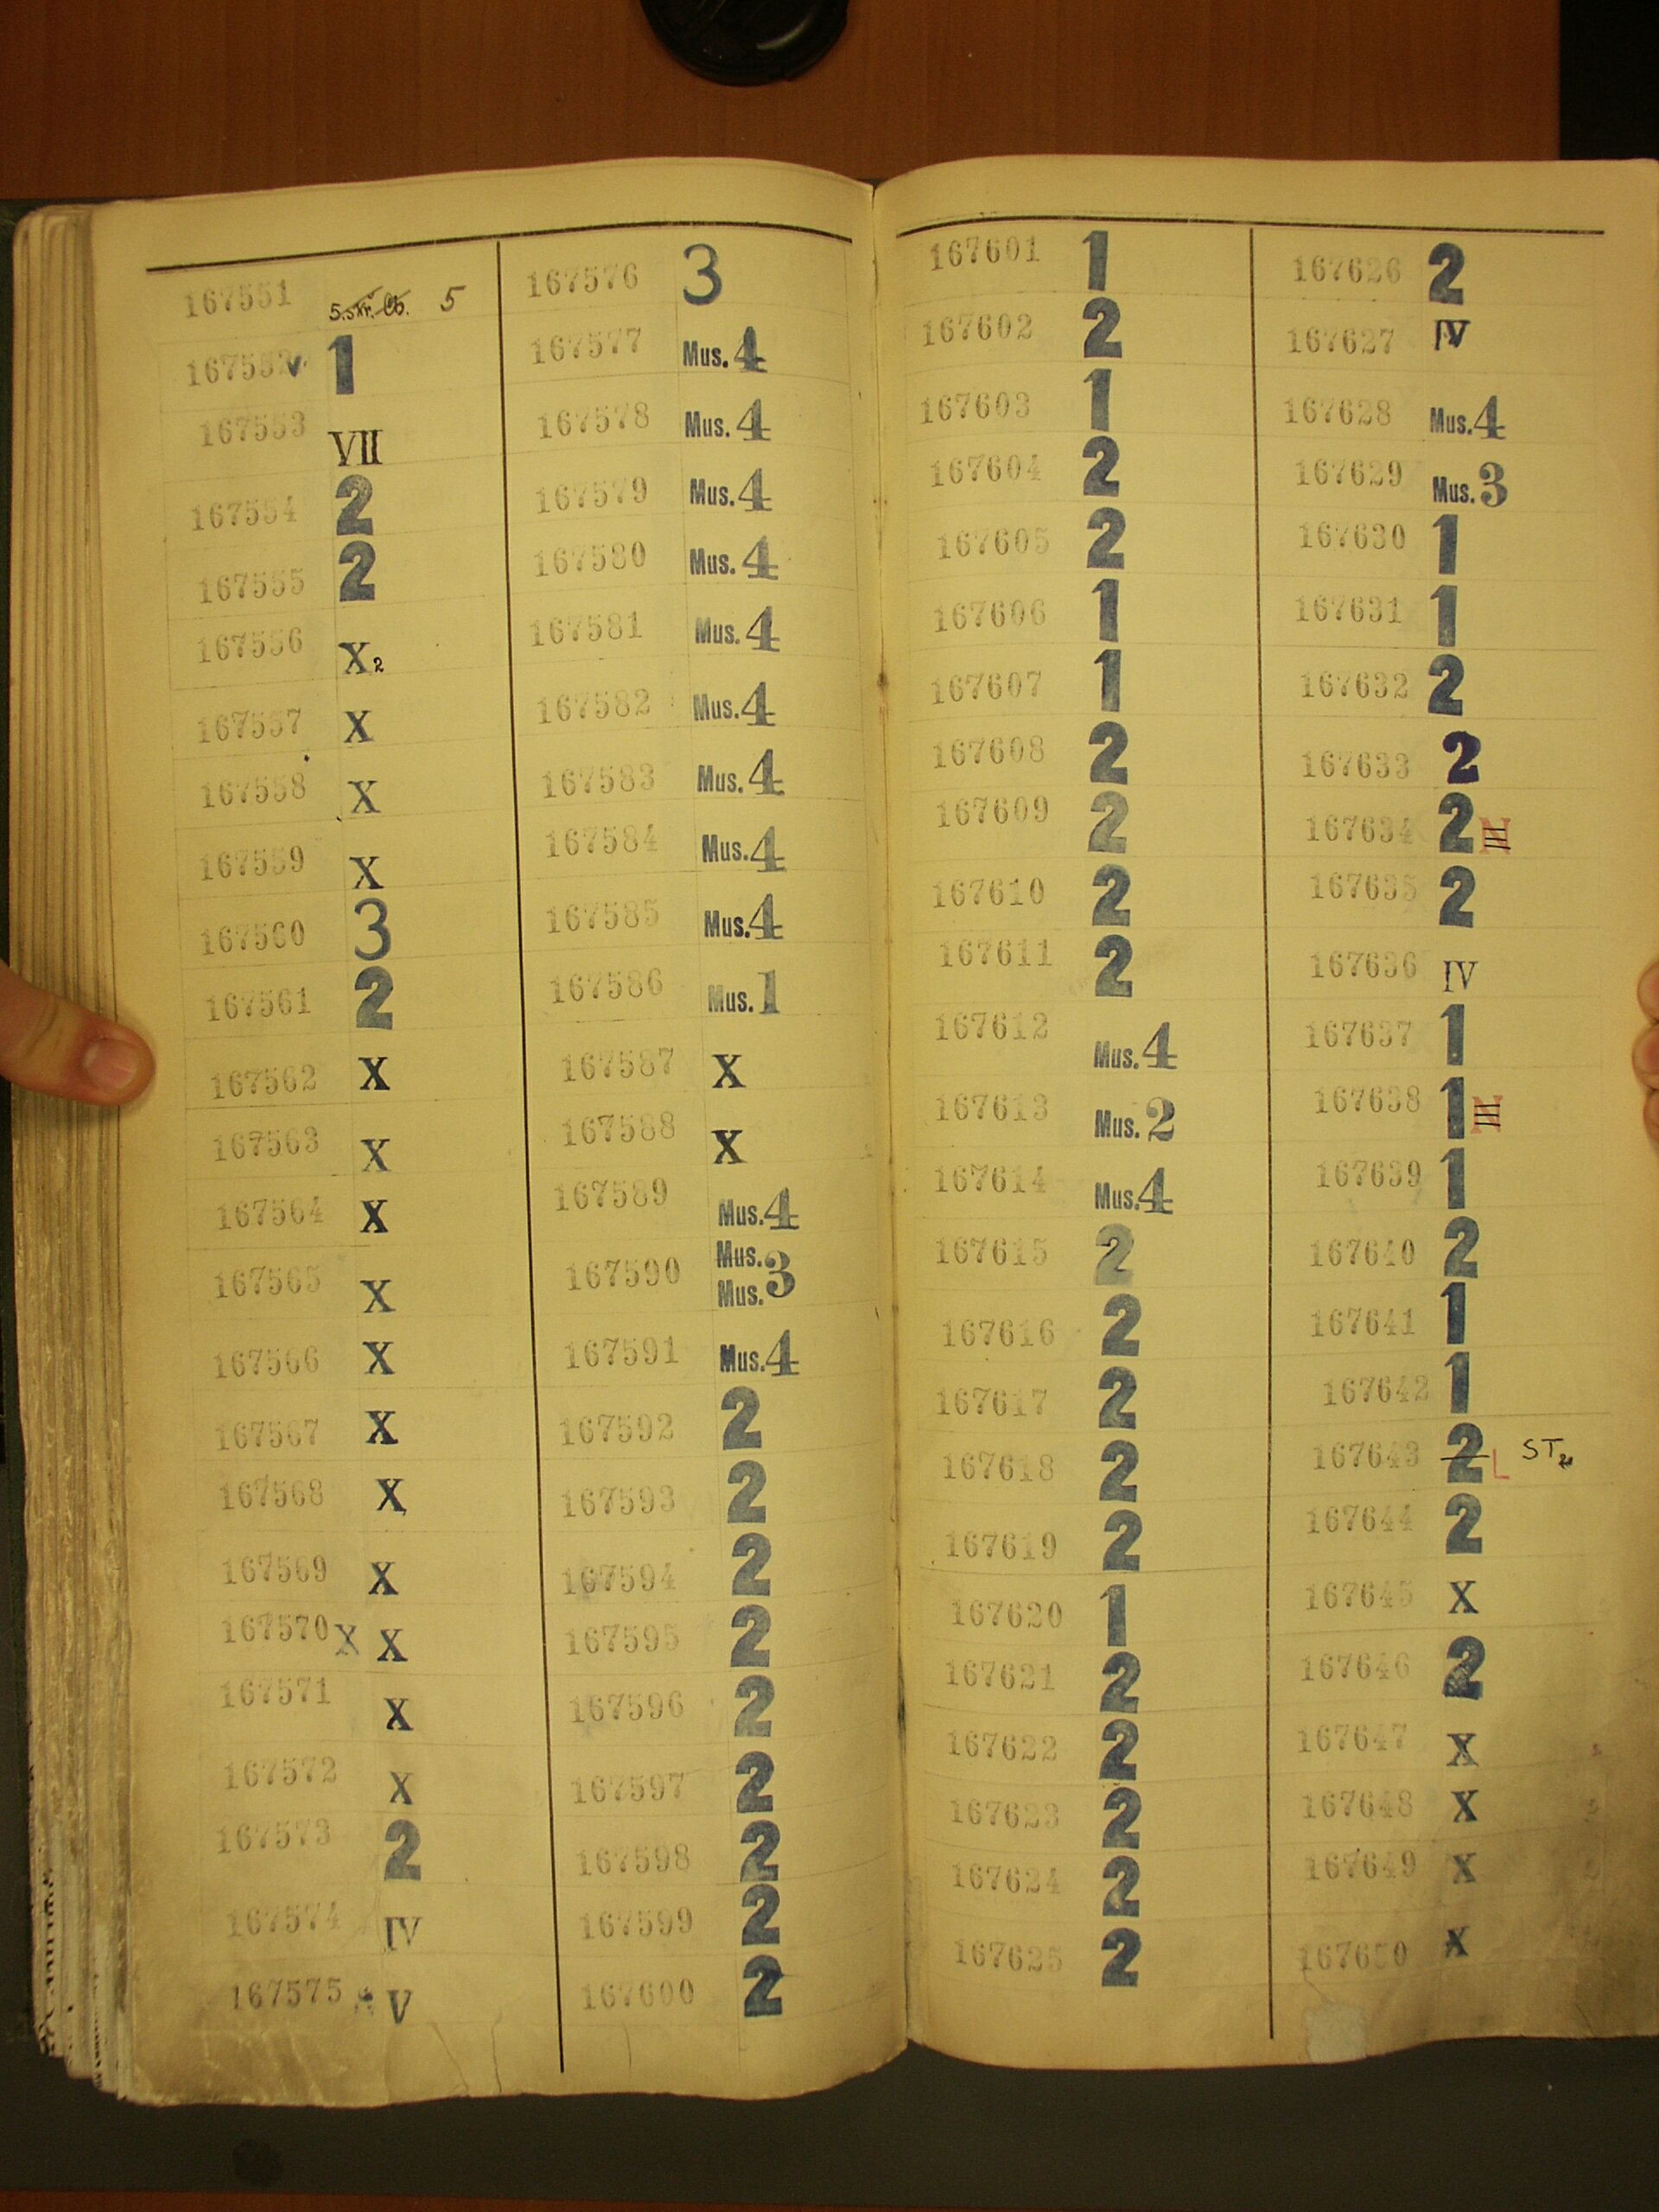 167551 5.skr. Cb. 5
167552 v 1
167553 VII
167554 2
167555 2
167556 X2
167557 X
167558 X
167559 X
167560 3
167561 2
167562 X
167563 X
167564 X
167565 X
167566 X
167567 X
167568 X
167569 X
167570 X X
167571 X
167572 X
167573 2
167574 IV
167575 V
167576 3
167577 Mus. 4
167578 Mus. 4
167579 Mus. 4
167580 Mus. 4
167581 Mus. 4
167582 Mus. 4
167583 Mus. 4
167584 Mus. 4
167585 Mus. 4
167586 Mus. 1
167587 X
167588 X
167589 Mus. 4
167590 Mus. Mus. 3
167591 Mus. 4
167592 2
167593 2
167594 2
167595 2
167596 2
167597 2
167598 2
167599 2
167600 2
167601 1
167602 2
167603 1
167604 2
167605 2
167606 1
167607 1
167608 2
167609 2
167610 2
167611 2
167612 Mus. 4
167613 Mus. 2
167614 Mus. 4
167615 2
167616 2
167617 2
167618 2
167619 2
167620 1
167621 2
167622 2
167623 2
167624 2
167625 2
167626 2
167627 IV
167628 Mus. 4
167629 Mus. 3
167630 1
167631 1
167632 2
167633 2
167634 2 N
167635 2
167636 IV
167637 1
167638 1 N
167639 1
167640 2
167641 1
167642 1
167643 2 L ST2
167644 2
167645 X
167646 2
167647 X
167648 X
167649 X
167650 X